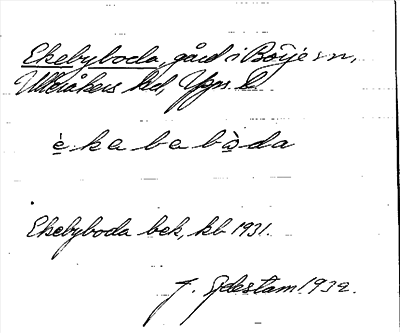 Ekebyboda, gård i Börje sn,
Ulleråkers hd, Upps. l.
ẹ̀ k a b a b ọ̀ d a
Ekebyboda bek, kb 1931.
F. Edestam 1932.